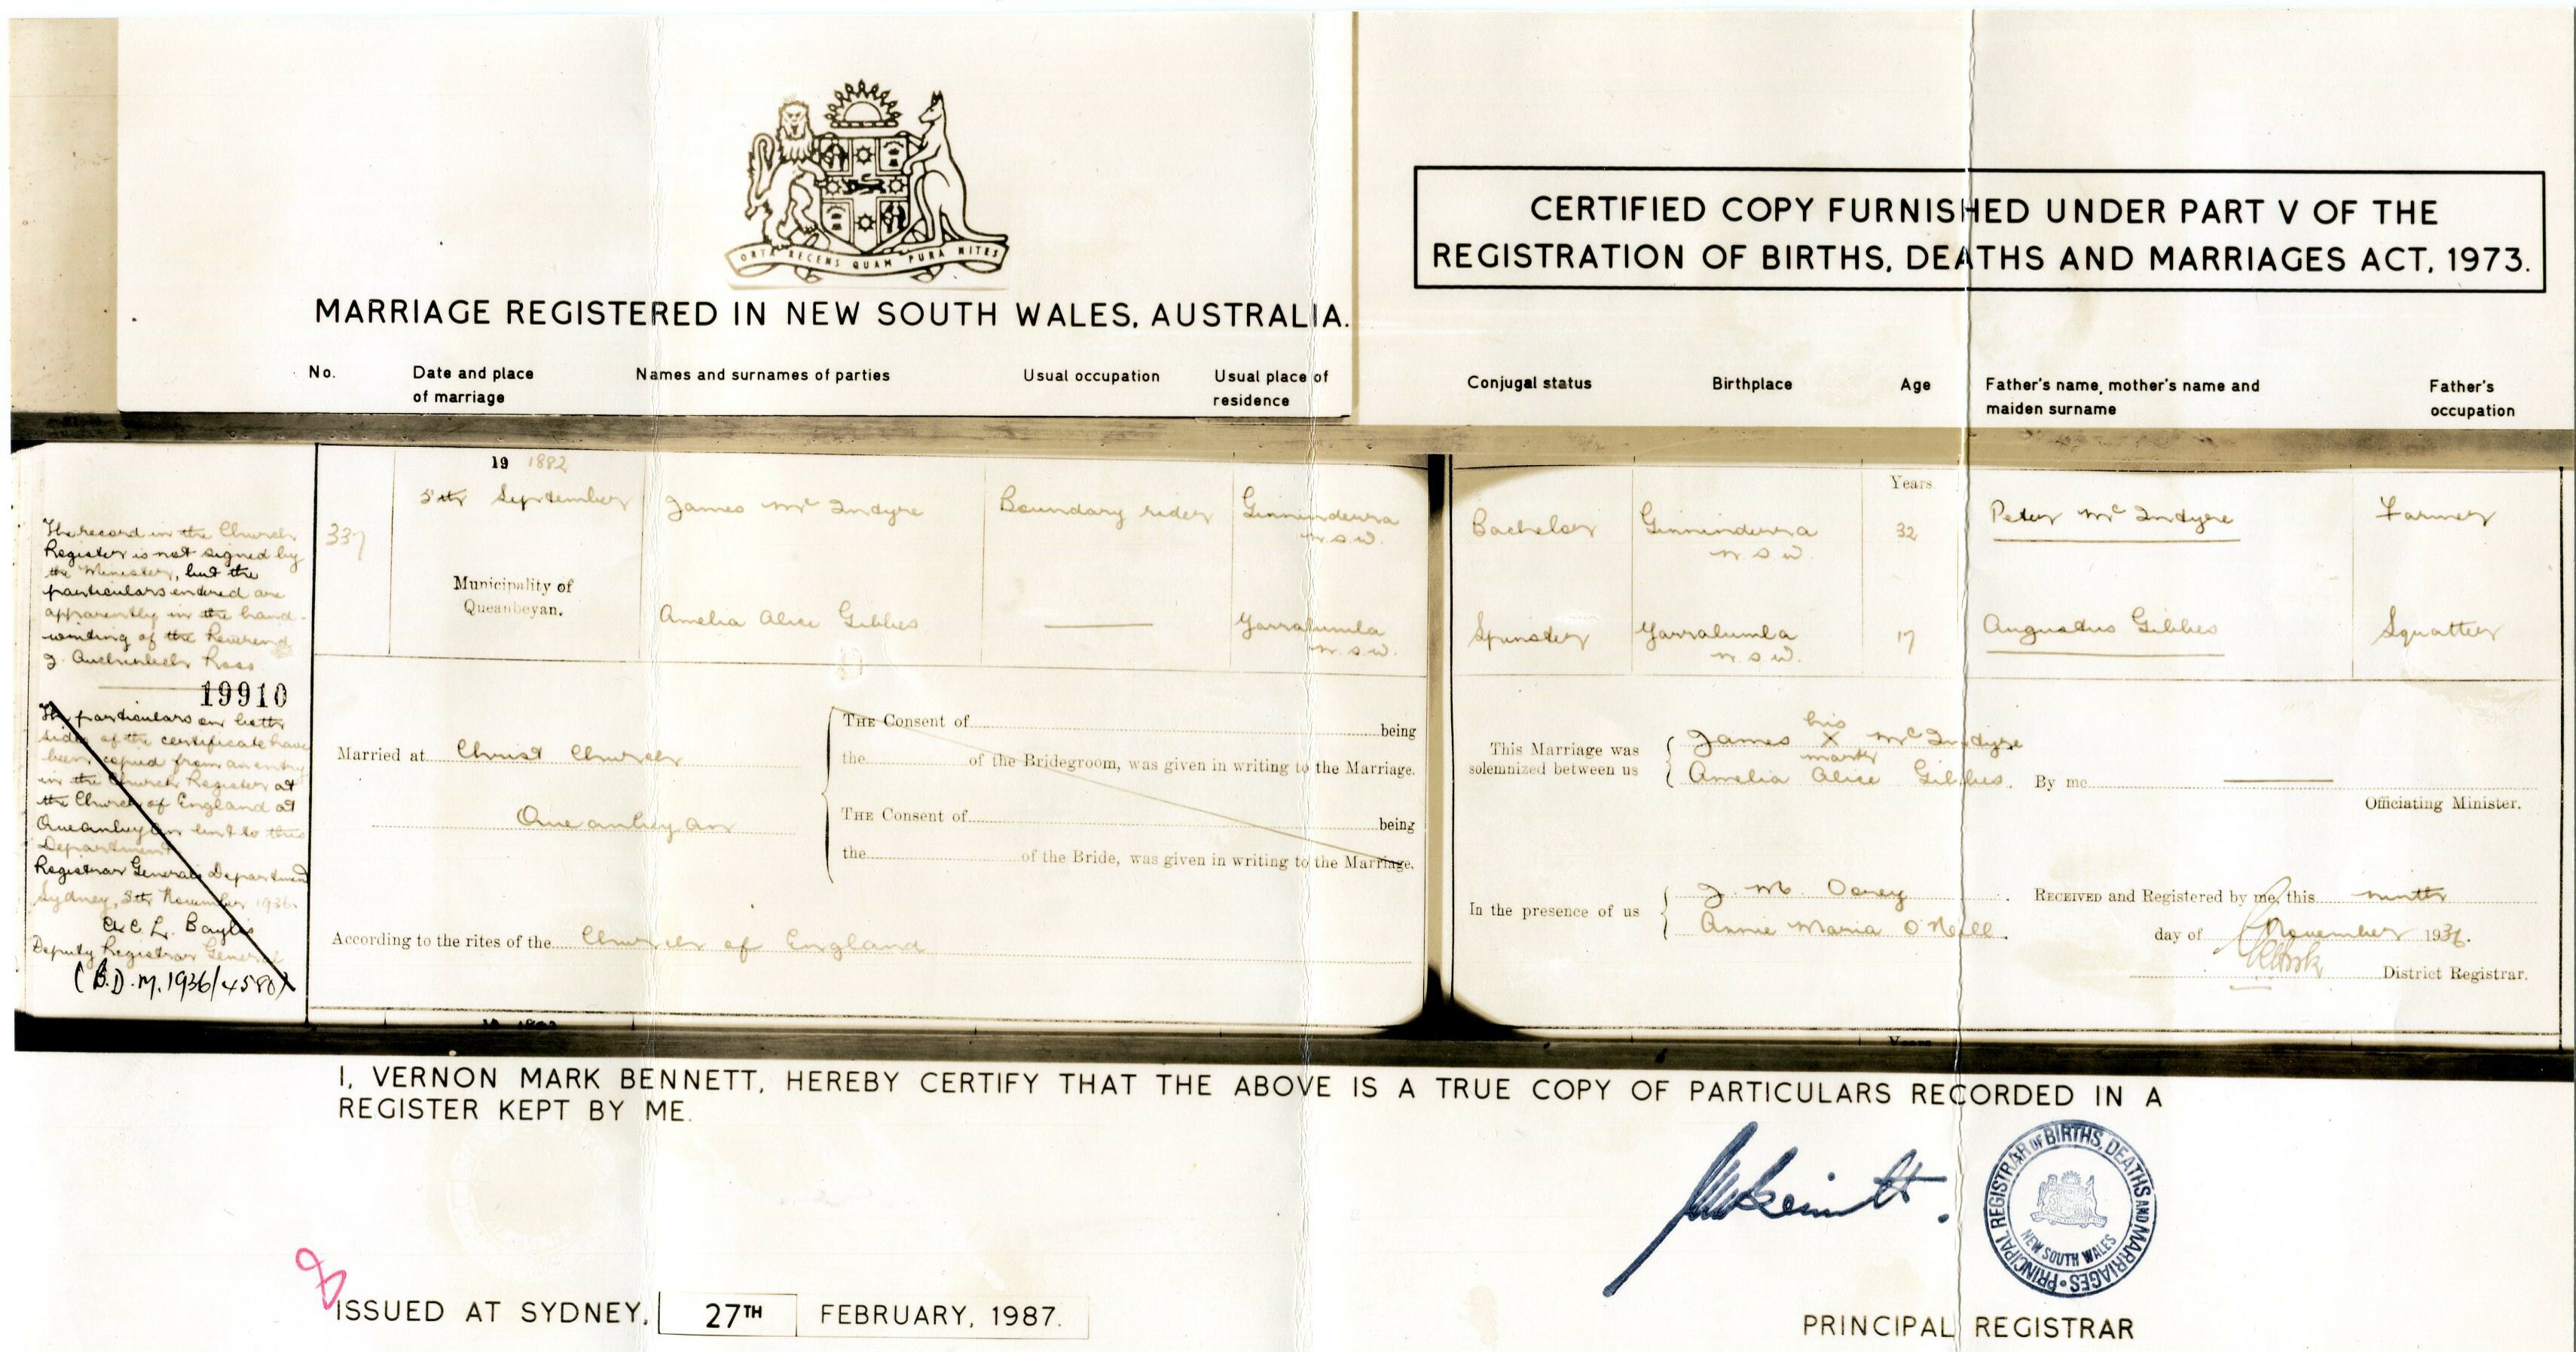 ORTA RECENS QUAM PURA NITES
MARRIAGE REGISTERED IN NEW SOUTH WALES, AUSTRALIA.
CERTIFIED COPY FURNISHED UNDER PART V OF THE
REGISTRATION OF BIRTHS, DEATHS AND MARRIAGES ACT, 1973.
No.
Date and place
of marriage
Names and surnames of parties
Usual occupation
Usual place of
residence
Conjugal status
Birthplace
Age
Father's name, mother's name and
maiden surname
Father's
occupation
The record in the Church
Register is not signed by
the Minister, but the
particulars entered are
apparently in the hand-
writing of the Reverend
Ross
19910
The particulars on both
sides of the certificate have
been copied from an entry
in the Church Register at
the Church of England at
Queanbeyan lent to this
Department
Registrar Generals Department
Sydney, 5th November 1936.
Bayliss
Deputy Registrar General
(B.D.M. 1936/4580)
337
19 1882
5th September
Municipality of
Queanbeyan.
James Mc Intyre
Boundary rider
Ginninderra
N.S.W.
Amelia Alice Gibbes
Yarralumla
N.S.W.
Bachelor
Ginninderra
N.S.W.
Years
32
Peter Mc Intyre
Farmer
Spinster
Yarralumla
N.S.W.
17
Augustus Gibbes
Squatter
Married at Christ Church
Queanbeyan
According to the rites of the Church of England
THE Consent of being
the of the Bridegroom, was given in writing to the Marriage.
THE Consent of being
the of the Bride, was given in writing to the Marriage.
This Marriage was
solemnized between us
his
James X Mc Intyre
mark
Amelia Alice Gibbes.
By me
Officiating Minister.
In the presence of us
J. M.
Annie Maria O'Neill.
RECEIVED and Registered by me, this ninth
day of November 1936.
District Registrar.
Years
I, VERNON MARK BENNETT, HEREBY CERTIFY THAT THE ABOVE IS A TRUE COPY OF PARTICULARS RECORDED IN A
REGISTER KEPT BY ME.
PRINCIPAL REGISTRAR OF BIRTHS, DEATHS AND MARRIAGES
NEW SOUTH WALES
ISSUED AT SYDNEY, 27TH FEBRUARY, 1987.
PRINCIPAL REGISTRAR